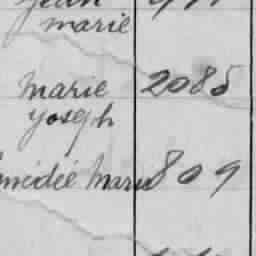 Jean
marie
marie 2085
yoseph
médée marie 809